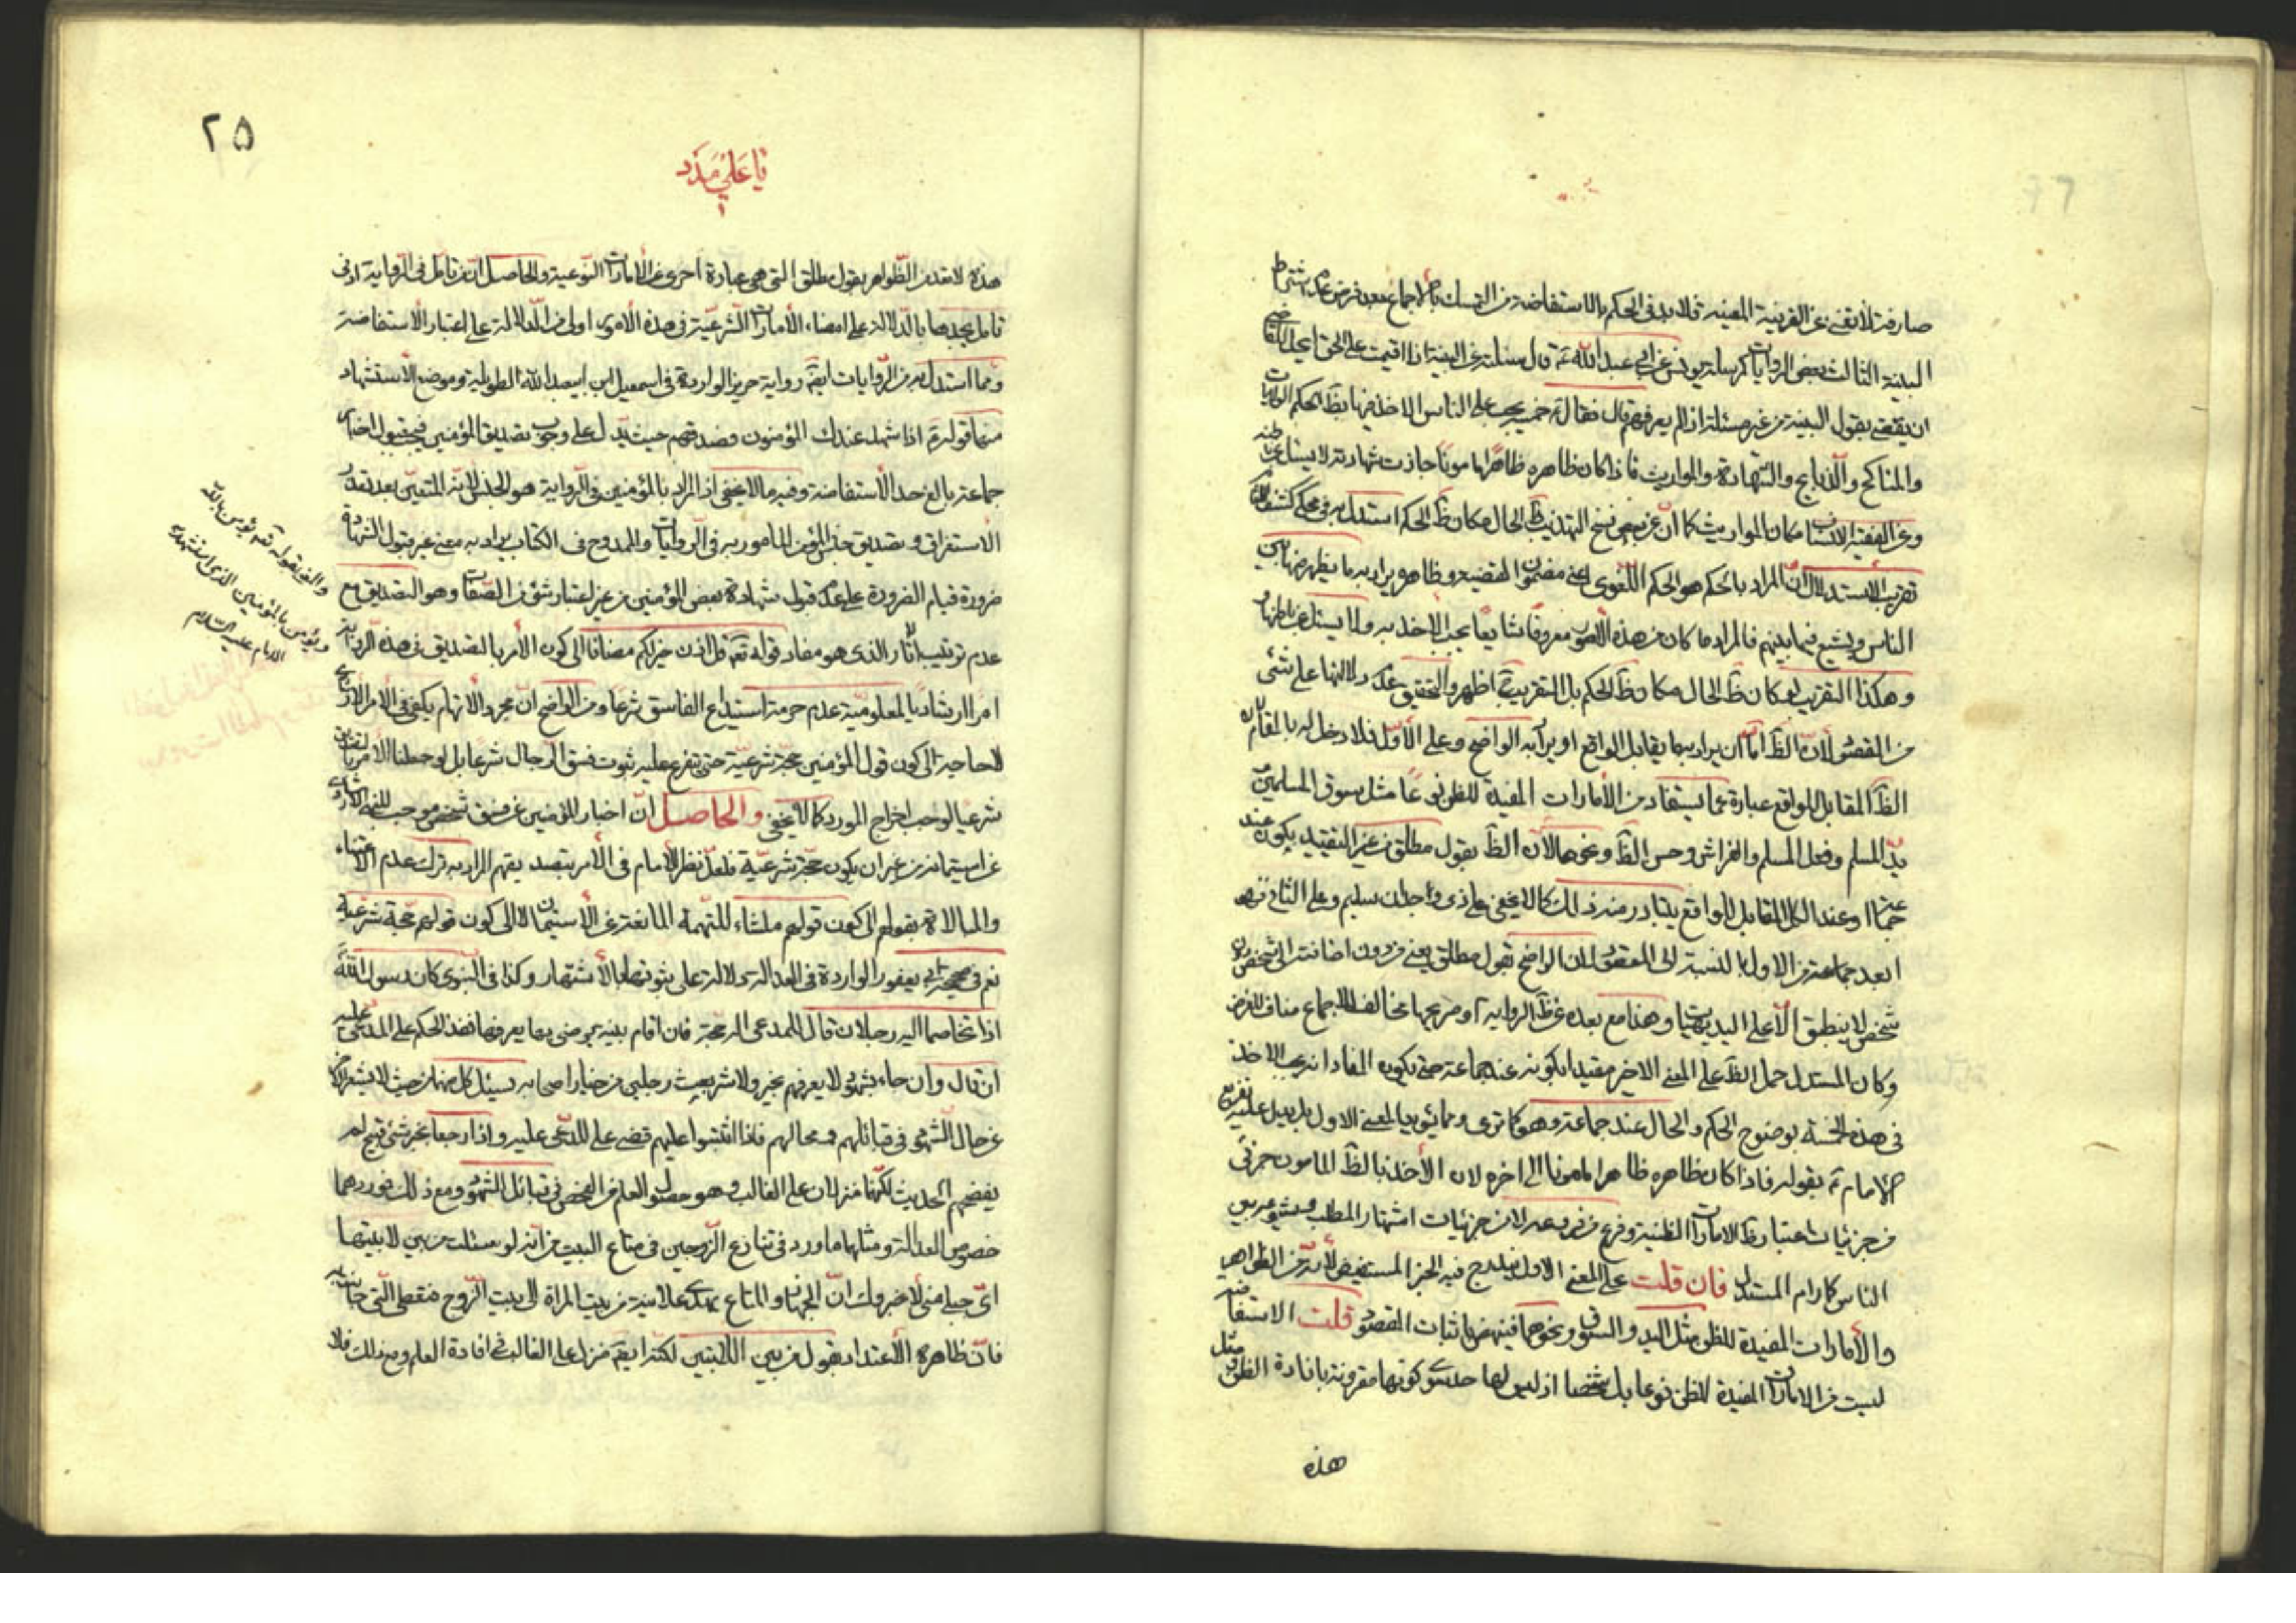 صارفة لا تغنى عن القرينة المعينة فلا بد فى الحكم بالاستفاضة من التمسك بالاجماع بعد فرض عدم اشتراط
البينة الثالث بعض الروايات كمرسلة يونس عن ابى عبد الله ع قال سئلته عن البينة اذا اقيمت على الحق ايحل للقاضى
ان يقضى بقول البينة من غير مسئلة اذا لم يعرفهم قال فقال ع خمسة يجب على الناس الاخذ فيها بظ الحكم الولايات
والمناكح والذبايح والشهادة والمواريث فاذا كان ظاهره ظاهرا مامونا جازت شهادته لا يسئل عن باطنه
وعن الفقيه الانساب مكان المواريث كما ان عن بعض نسخ التهذيب ظ الحال مكان ظ الحكم استدل به فى محكى كشف اللثام
تقريب الاستدلال ان المراد بالحكم هو الحكم اللغوى اعنى مضمون القضية وظاهره يراد به ما يظهر منها بين
الناس ويشيع فيما بينهم فالمراد ما كان من هذه الامور معروفا شايعا يجب الاخذ به ولا يسئل عن باطنها
وهكذا التقريب لو كان ظ الحال مكان ظ الحكم بل التقريب ح اظهر والتحقيق عدم دلالتها على شئ
من المقصود لان الظ اما ان يراد به ما يقابل الواقع او يراد به الواضح وعلى الاول فلا دخل له بالمقام لان
الظ المقابل للواقع عبارة عما يستفاد من الأمارات المفيدة للظن نوعا مثل سوق المسلمين
يد المسلم وفعل المسلم والفراش وحسن الظ ونحوها لان الظ بقول مطلق من غير التقييد بكونه عند
جماعة او عند الكل المقابل للواقع يتبادر منه ذلك كما لا يخفى على ذى وجدان سليم وعلى الثانى فهو
ابعد جماعة من الاول بالنسبة الى المقصود لان الواضح بقول مطلق يعنى من دون اضافته الى شخص دون
شخص لا ينطبق الا على البديهيات وهذا مع بعده عن ظ الرواية او صريحها مخالف للاجماع مناف للغرض
وكان المستدل حمل الظ على المعنى الاخير مقيدا بكونه عند جماعة حتى يكون المفاد انه يجب الاخذ
فى هذه الخمسة بوضوح الحكم والحال عند جماعة وهو كما ترى ومما يؤيد المعنى الاول بل يدل عليه تفريع
الامام ع بقوله فاذا كان ظاهره ظاهرا مامونا الى اخره لان الأخذ بالظ المامون جزئى
من جزئيات اعتبار ظ الامارات الظنية وفرع من فروعه لا من جزئيات اشتهار المطلب وشيوعه بين
الناس كما رام المستدل فان قلت على المعنى الاول يندرج فيه الخبر المستفيض لأنه من الظواهر
والأمارات المفيدة للظن مثل اليد والسوق ونحوهما فينهض باثبات المقصود قلت الاستفاضة
ليست من الامارات المفيدة للظن نوعا بل شخصا اذ ليس لها حد سوى كونها مقرونة بافادة الظن مثل
هذه
۲۵
يا على مدد
هذه لا تعد من الظواهر بقول مطلق التى هى عبارة اخرى عن الأمارات النوعية والحاصل ان من تامل فى الرواية ادنى
تامل يجدها بالدلالة على امضاء الأمارات الشرعية فى هذه الأمور اولى من الدلالة على اعتبار الاستفاضة
ومما استدل به من الروايات ايضا رواية حريز الواردة فى اسمعيل ابن ابيعبد الله الطويلة وموضع الاستشهاد
منها قوله ع اذا شهد عندك المؤمنون فصدقهم حيث يدل على وجوب تصديق المؤمنين فيجب قبول اخبار
جماعة بالغ حد الاستفاضة وفيه ما لا يخفى اذ المراد بالمؤمنين فى الرواية هو الجنس لانه المتعين بعد تعذر
الاستغراق وتصديق جنس المؤمن المامور به فى الروايات والممدوح فى الكتاب يراد به معنى غير قبول الشهادة
ضرورة قيام الضرورة على عدم قبول شهادة بعض المؤمنين من غير اعتبار شئ من الصفات وهو التصديق مع
عدم ترتيب اثار الذى هو مفاد قوله تع قل اذن خير لكم مضافا الى كون الأمر بالتصديق فى هذه الرواية
امرا ارشاديا لمعلومية عدم حرمة استيداع الفاسق شرعا ومن الواضح ان مجرد الاتهام يكفى فى الامر الارشادى
لا حاجة الى كون قول المؤمنين حجة شرعية حتى يتفرع عليه ثبوت فسق الرجال شرعا بل لو جعلنا الأمر بالتصديق
شرعيا لوجب اخراج المورد كما لا يخفى والحاصل ان اخبار المؤمنين عن فسق شخص موجب للنهى الارشادى
عن استيمانه من غير ان يكون حجة شرعية فلعل نظر الأمام فى الأمر بتصديقهم المراد به ترك عدم الاعتناء
والمبالاة بقولهم الى كون قولهم منشاء للتهمة المانعة عن الأستيمان لا الى كون قولهم حجة شرعية
نعم فى صحيحة ابن ابى يعفور الواردة فى العدالة دلالة على ثبوتها بالأشتهار وكذا فى النبوى كان رسول الله
اذا تخاصما اليه رجلان قال للمدعى الك حجة فان اقام بينة يرضى بها يعرفها نفذ الحكم على المدعى عليه
ان قال وان جاء بشهود لا يعرفهم بخير ولا شر بعث رجلين من خيار اصحابه يسئل كل منهما من حيث لا يشعر الاخر
عن حال الشهود فى قبائلهم ومحالهم فاذا اثنوا عليهم قضى على المدعى عليه واذا رجعا بخبر شئ قبيح لم
يفضحهم الحديث لكنهما منزلان على الغالب وهو حصول العلم من الفحص فى قبائل الشهود ومع ذلك فموردهما
خصوص العدالة ومثلهما ما ورد فى تنازع الزوجين فى متاع البيت من انه لو سئلت من بين لابتيها
اى جبلى منى لاخبروك ان الجهاز والمتاع يهدى علانية من بيت المراة الى بيت الزوج فتعطى التى جائت به
فان ظاهره الأعتداد بقول من بين اللابتين لكنه ايضا منزل على الغالب فى افادة العلم ومع ذلك فلا
والفرق قوله تع يؤمن بالله
ويؤمن بالمؤمنين الذى استشهد به
الامام عليه السلام